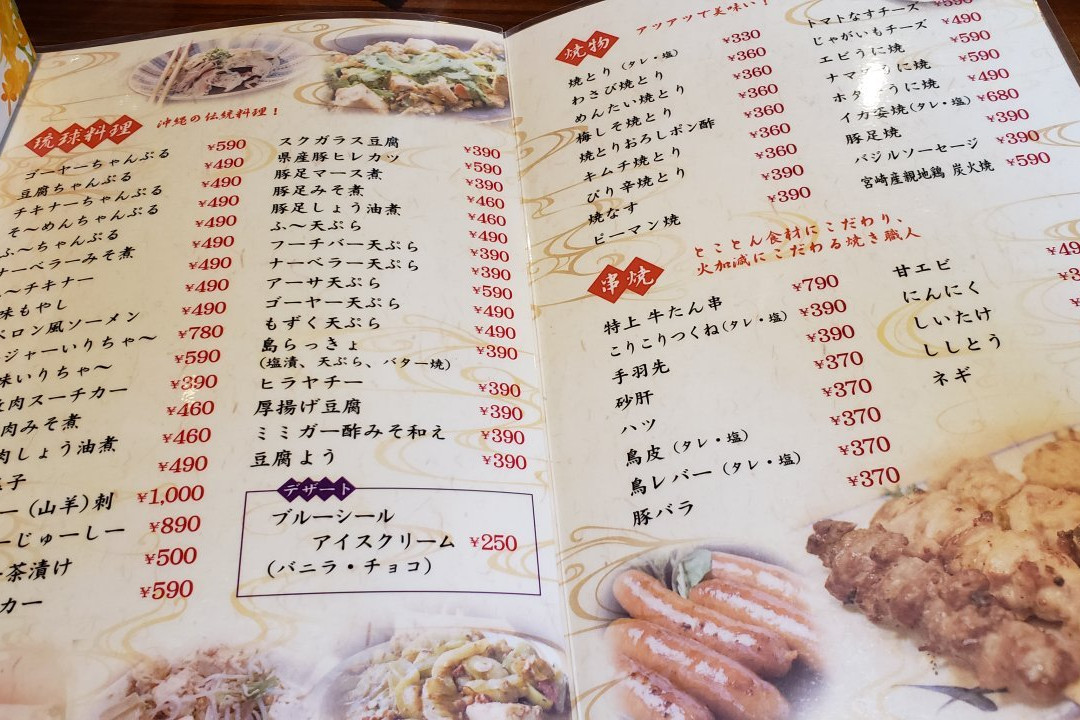 琉球料理
沖縄の伝統料理！
ゴーヤーちゃんぷる ¥590
豆腐ちゃんぷる ¥490
チキナーちゃんぷる ¥490
そ〜めんちゃんぷる ¥490
ふ〜ちゃんぷる ¥490
ナーベラーみそ煮 ¥490
〜チキナー ¥490
味もやし ¥490
ロン風ソーメン ¥490
ジャーいりちゃ〜 ¥780
味いりちゃ〜 ¥590
肉スーチカー ¥390
肉みそ煮 ¥460
肉しょう油煮 ¥460
子 ¥490
ー(山羊)刺 ¥1,000
ーじゅーしー ¥890
茶漬け ¥500
カー ¥590
スクガラス豆腐 ¥390
県産豚ヒレカツ ¥590
豚足マース煮 ¥390
豚足みそ煮 ¥460
豚足しょう油煮 ¥460
ふ〜天ぷら ¥490
フーチバー天ぷら ¥390
ナーベラー天ぷら ¥390
アーサ天ぷら ¥590
ゴーヤー天ぷら ¥490
もずく天ぷら ¥490
島らっきょ ¥390
(塩漬、天ぷら、バター焼)
ヒラヤチー ¥390
厚揚げ豆腐 ¥390
ミミガー酢みそ和え ¥390
豆腐よう ¥390
デザート
ブルーシール
アイスクリーム ¥250
(バニラ・チョコ)
焼物
アツアツで美味い！
焼とり(タレ・塩) ¥330
わさび焼とり ¥360
めんたい焼とり ¥360
梅しそ焼とり ¥360
焼とりおろしポン酢 ¥360
キムチ焼とり ¥360
ぴり辛焼とり ¥360
焼なす ¥390
ピーマン焼 ¥390
トマトなすチーズ ¥590
じゃがいもチーズ ¥490
エビうに焼 ¥590
ナマコうに焼 ¥590
ホタテうに焼 ¥490
イカ姿焼(タレ・塩) ¥680
豚足焼 ¥390
バジルソーセージ ¥390
宮崎産親地鶏 炭火焼 ¥590
串焼
とことん食材にこだわり、
火加減にこだわる焼き職人
特上 牛たん串 ¥790
こりこりつくね(タレ・塩) ¥390
手羽先 ¥390
砂肝 ¥370
ハツ ¥370
鳥皮(タレ・塩) ¥370
鳥レバー(タレ・塩) ¥370
豚バラ ¥370
甘エビ
にんにく
しいたけ
ししとう
ネギ